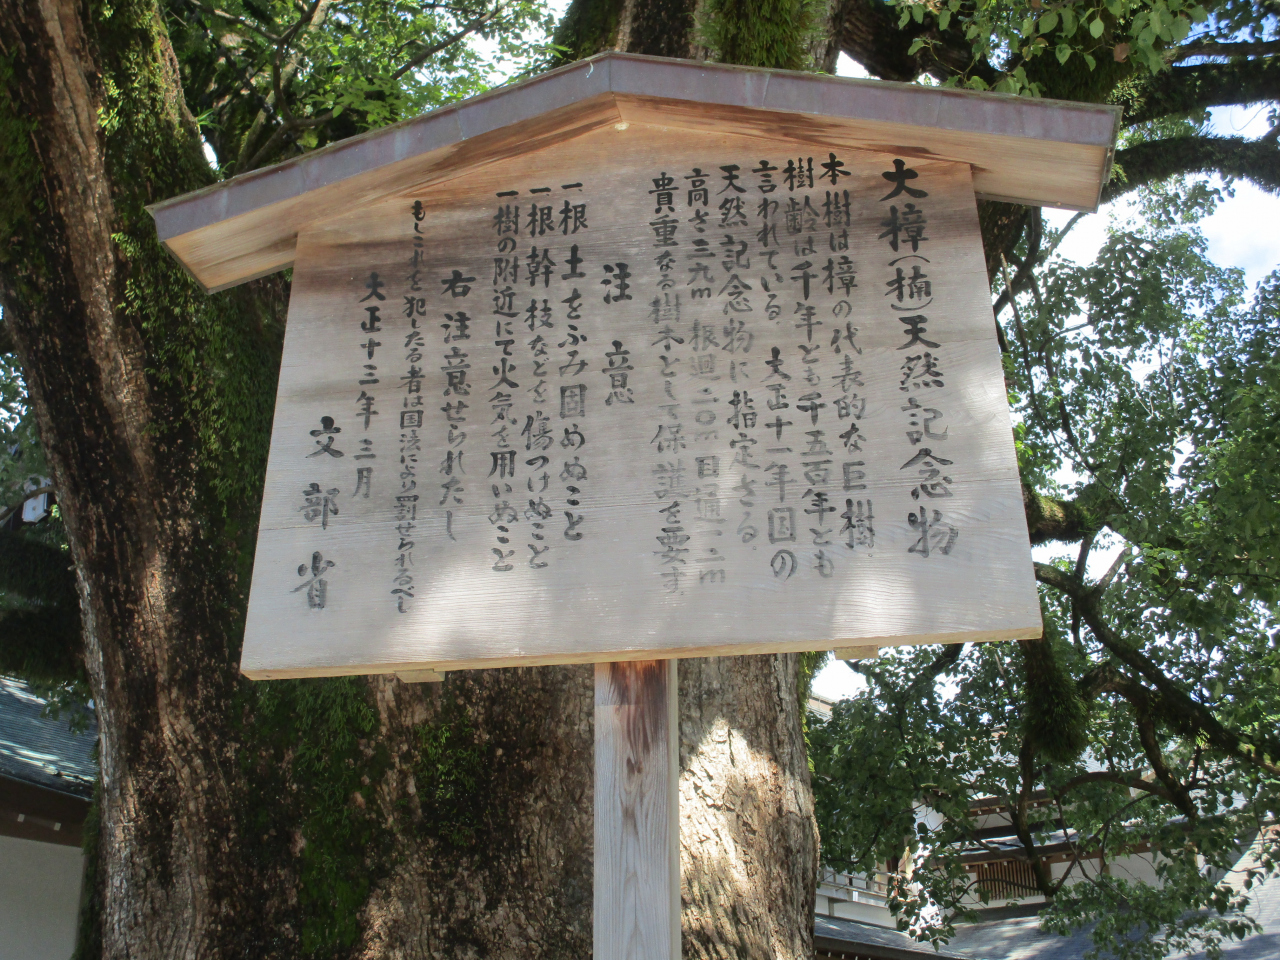 大樟(楠)天然記念物
本樹は樟の代表的な巨樹
樹齢は千年とも千五百年とも
言われている 大正十一年国の
天然記念物に指定さる
高さ三九m 根廻二〇m目通一二m
貴重なる樹木として保護を要す
注意
一根土をふみ固めぬこと
一根幹枝などを傷つけぬこと
一樹の附近にて火気を用いぬこと
右注意せられたし
もしこれを犯したる者は国法により罰せられるべし
大正十三年三月
文部省